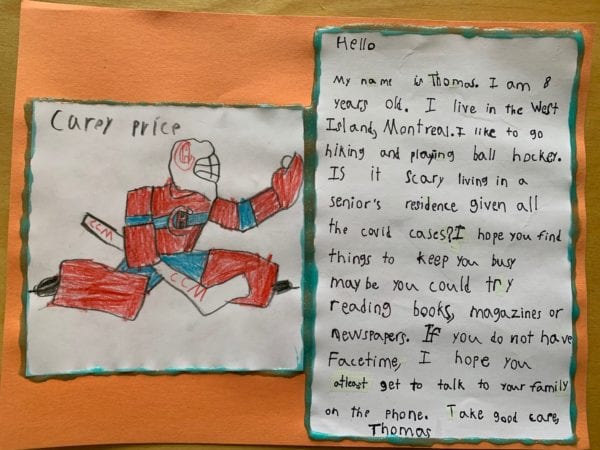 Carey price
CCM
CCM
Hello
My name is Thomas. I am 8
years old. I live in the West
Island, Montreal. I like to go
hiking and playing ball hockey.
IS it scary living in a
senior's residence given all
the covid cases? I hope you find
things to keep you busy
maybe you could try
reading books, magazines or
newspapers. If you do not have
Facetime, I hope you
atleast get to talk to your family
on the phone. Take good care,
Thomas